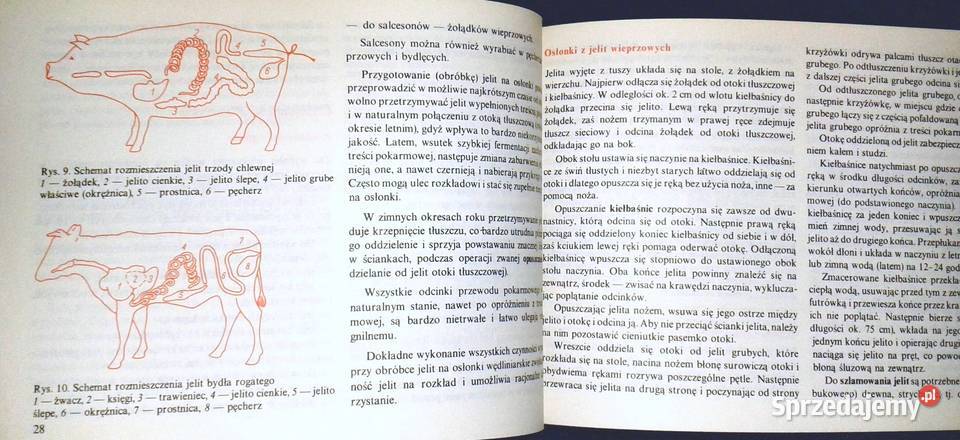 Rys. 9. Schemat rozmieszczenia jelit trzody chlewnej
1 — żołądek, 2 — jelito cienkie, 3 — jelito ślepe, 4 — jelito grube
właściwe (okrężnica), 5 — prostnica, 6 — pęcherz
Rys. 10. Schemat rozmieszczenia jelit bydła rogatego
1 — żwacz, 2 — księgi, 3 — trawieniec, 4 — jelito cienkie, 5 — jelito
ślepe, 6 — okrężnica, 7 — prostnica, 8 — pęcherz
28
— do salcesonów — żołądków wieprzowych.
Salcesony można również wyrabiać w
przowych i bydlęcych.
Przygotowanie (obróbkę) jelit na osłonki
przeprowadzić w możliwie najkrótszym czasie
wolno przetrzymywać jelit wypełnionych treścią
i w naturalnym połączeniu z otoką tłuszczową
okresie letnim), gdyż wpływa to bardzo
jakość. Latem, wsutek szybkiej fermentacji
treści pokarmowej, następuje zmiana zabarwienia
nieją one, a nawet czernieją i nabierają
Często mogą ulec rozkładowi i stać się zupełnie
na osłonki.
W zimnych okresach roku przetrzymywanie
duje krzepnięcie tłuszczu, co bardzo utrudnia
go oddzielenie i sprzyja powstawaniu znacznej
w ściankach, podczas operacji zwanej
dzielanie od jelit otoki tłuszczowej).
Wszystkie odcinki przewodu pokarmowego
naturalnym stanie, nawet po opróżnieniu z
mowej, są bardzo nietrwałe i łatwo ulegają
gnilnemu.
Dokładne wykonanie wszystkich czynności
przy obróbce jelit na osłonki wędliniarskie
ność jelit na rozkład i umożliwia racjonalne
rzystanie.
Osłonki z jelit wieprzowych
Jelita wyjęte z tuszy układa się na stole, z żołądkiem na
wierzchu. Najpierw odłącza się żołądek od otoki tłuszczowej
i kiełbaśnicy. W odległości ok. 2 cm od wlotu kiełbaśnicy do
żołądka przecina się jelito. Lewą ręką przytrzymuje się
żołądek, zaś nożem trzymanym w prawej ręce zdejmuje
tłuszcz sieciowy i odcina żołądek od otoki tłuszczowej,
odkładając go na bok.
Obok stołu ustawia się naczynie na kiełbaśnice. Kiełbaśni-
ce ze świń tłustych i niezbyt starych łatwo oddzielają się od
otoki i dlatego opuszcza się je ręką bez użycia noża, inne — za
pomocą noża.
Opuszczanie kiełbaśnic rozpoczyna się zawsze od dwu-
nastnicy, którą odcina się od otoki. Następnie prawą ręką
pociąga się oddzielony koniec kiełbaśnicy od siebie i w dół,
zaś kciukiem lewej ręki pomaga oderwać otokę. Odłączoną
kiełbaśnicę wpuszcza się stopniowo do ustawionego obok
stołu naczynia. Oba końce jelita powinny znaleźć się na
zewnątrz, środek — zwisać na krawędzi naczynia, wyklucza-
jąc poplątanie odcinków.
Opuszczając jelita nożem, wsuwa się jego ostrze między
jelito i otokę i odcina ją. Aby nie przeciąć ścianki jelita, należy
na nim pozostawić cieniutkie pasemko otoki.
Wreszcie oddziela się otoki od jelit grubych, które
rozkłada się na stole, nacina nożem błonę surowiczą otoki i
obydwiema rękami rozrywa poszczególne pętle. Następnie
przewraca się jelita na drugą stronę i poczynając od strony
krzyżówki odrywa palcami tłuszcz
grubego. Po odtłuszczeniu krzyżówki i
z dalszej części jelita grubego odcina
Od odtłuszczonego jelita grubego,
następnie krzyżówkę, w miejscu gdzie
grubego łączy się z częścią pofałdowaną
jelita grubego opróżnia z treści
Otokę oddzieloną od jelit zabezpiecza
niem kałem i studzi.
Kiełbaśnice natychmiast po opuszczeniu
ręką w środku długości odcinków,
kierunku otwartych końców, opróżnia
mowej (do podstawionego naczynia).
kiełbaśnicę za jeden koniec i wpuszcza
mień zimnej wody, przesuwając ją
jelito aż do drugiego końca.
wokół dłoni i układa w naczyniu z
lub zimną wodą (latem) na 12–24
Zmacerowane kiełbaśnice
ciepłą wodą, usuwając przed tym z
futrówką i przewiesza końce przez
ich nie poplątać. Następnie bierze
długości ok. 75 cm), wkłada na jego
jednym końcu jelito i opierając drugi
naciąga się jelito na pręt, co
błoną śluzową na zewnątrz.
Do szlamowania jelit są potrzebne
bukowego) drewna,
Sprzedajemy.pl